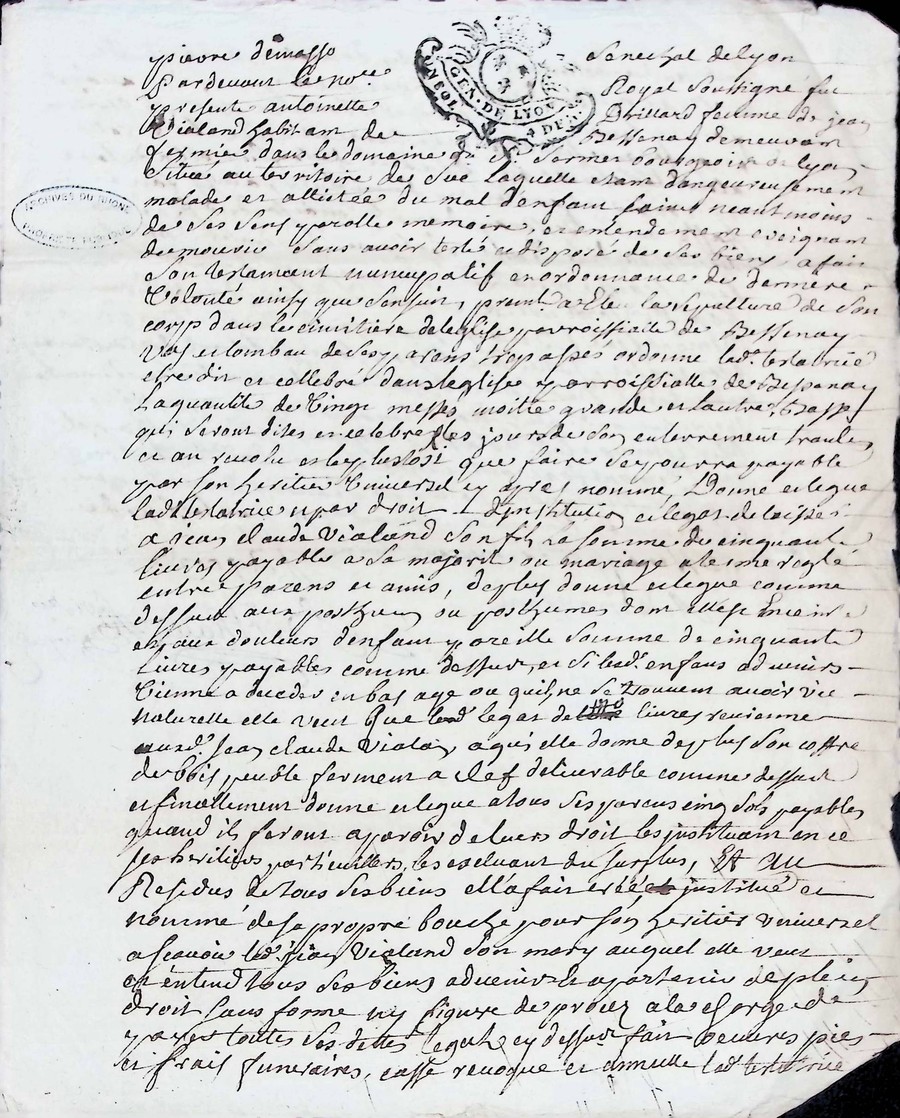 pierre demasso Senechal de lyon
Pardevant le no.re Royal Soussigné fut
presente antoinette Brillard femme de jean
Vialand habitant de Bessenay demeurant
fermier dans le domaine du Sr bourgeois de lyon
Situé au territoire de Sue laquelle etant dangeureusement
malade et allictée du mal d'enfant Saine neantmoins
de Ses Sens parolle memoire, et entendement creignant
de mourir Sans avoir testé et disposé de Ses biens, a fait
Son testament nuncupatif et ordonnance de derniere
Volonté ainsy que Sensuit, premt. a Eleu la Sepulture de Son
corp dans le cimitiere de leglise parroissialle de Bessenay
Vas et tombau de Ses parans trepassés ordonne lad. testatrice
etre dit et cellebré dans leglise parroissialle de Bessenay
La quantité de Vingt messes moitié grande et lautre basse
qui Seront dites et celebrées les jours de Son enterrement
et au revolu et le plustost que faire Se pourra payable
par Son heritier Universel cy apres nommé, Donne et legue
lad. testatrice par droit d'institution et legat delaissé
a jean claude Vialand Son fils la Somme de cinquante
livres payable a Sa majorité ou mariage a terme reglé
entre Parens et amis, de plus donne et legue comme
dessus aux posthume ou posthumes dont elle est Enceinte
et aux douleurs d'enfant pareille Somme de cinquante
livres payables comme dessus, et Si lesd. enfans advenir
Vienne a decder en bas age ou quil ne Se trouvent avoir vie
naturelle elle veut que led. legat de livres revienne
aud. Jean claude Vialan, a qui elle donne de plus Son coffre
de bois peuble ferment a clef delivrable comme dessus
et finallement donne et legue a tous Ses parens cinq Sols payables
quand ils feront aparoir de leurs droit les instituant en ce
Ses heritiers particulliers, les excluant du Surplus, Et Au
Residus de tous Ses biens elle a fait creéé institué et
nommé de Sa propre bouche pour Son heritier Universel
a Scavoir led. jean Vialand Son mary auquel elle veut
et entend tous Ses biens advenir et apartenir de plein
droit Sans forme ny figure de procez a la charge de
payer toutes Ses dettes legats cy dessus fait oeuvres pies
et frais funeraires, casse revoque et annulle lad. testatrice
GEN. DE LYON
ARCHIVES DU RHONE
PROPRIETE PUBLIQUE